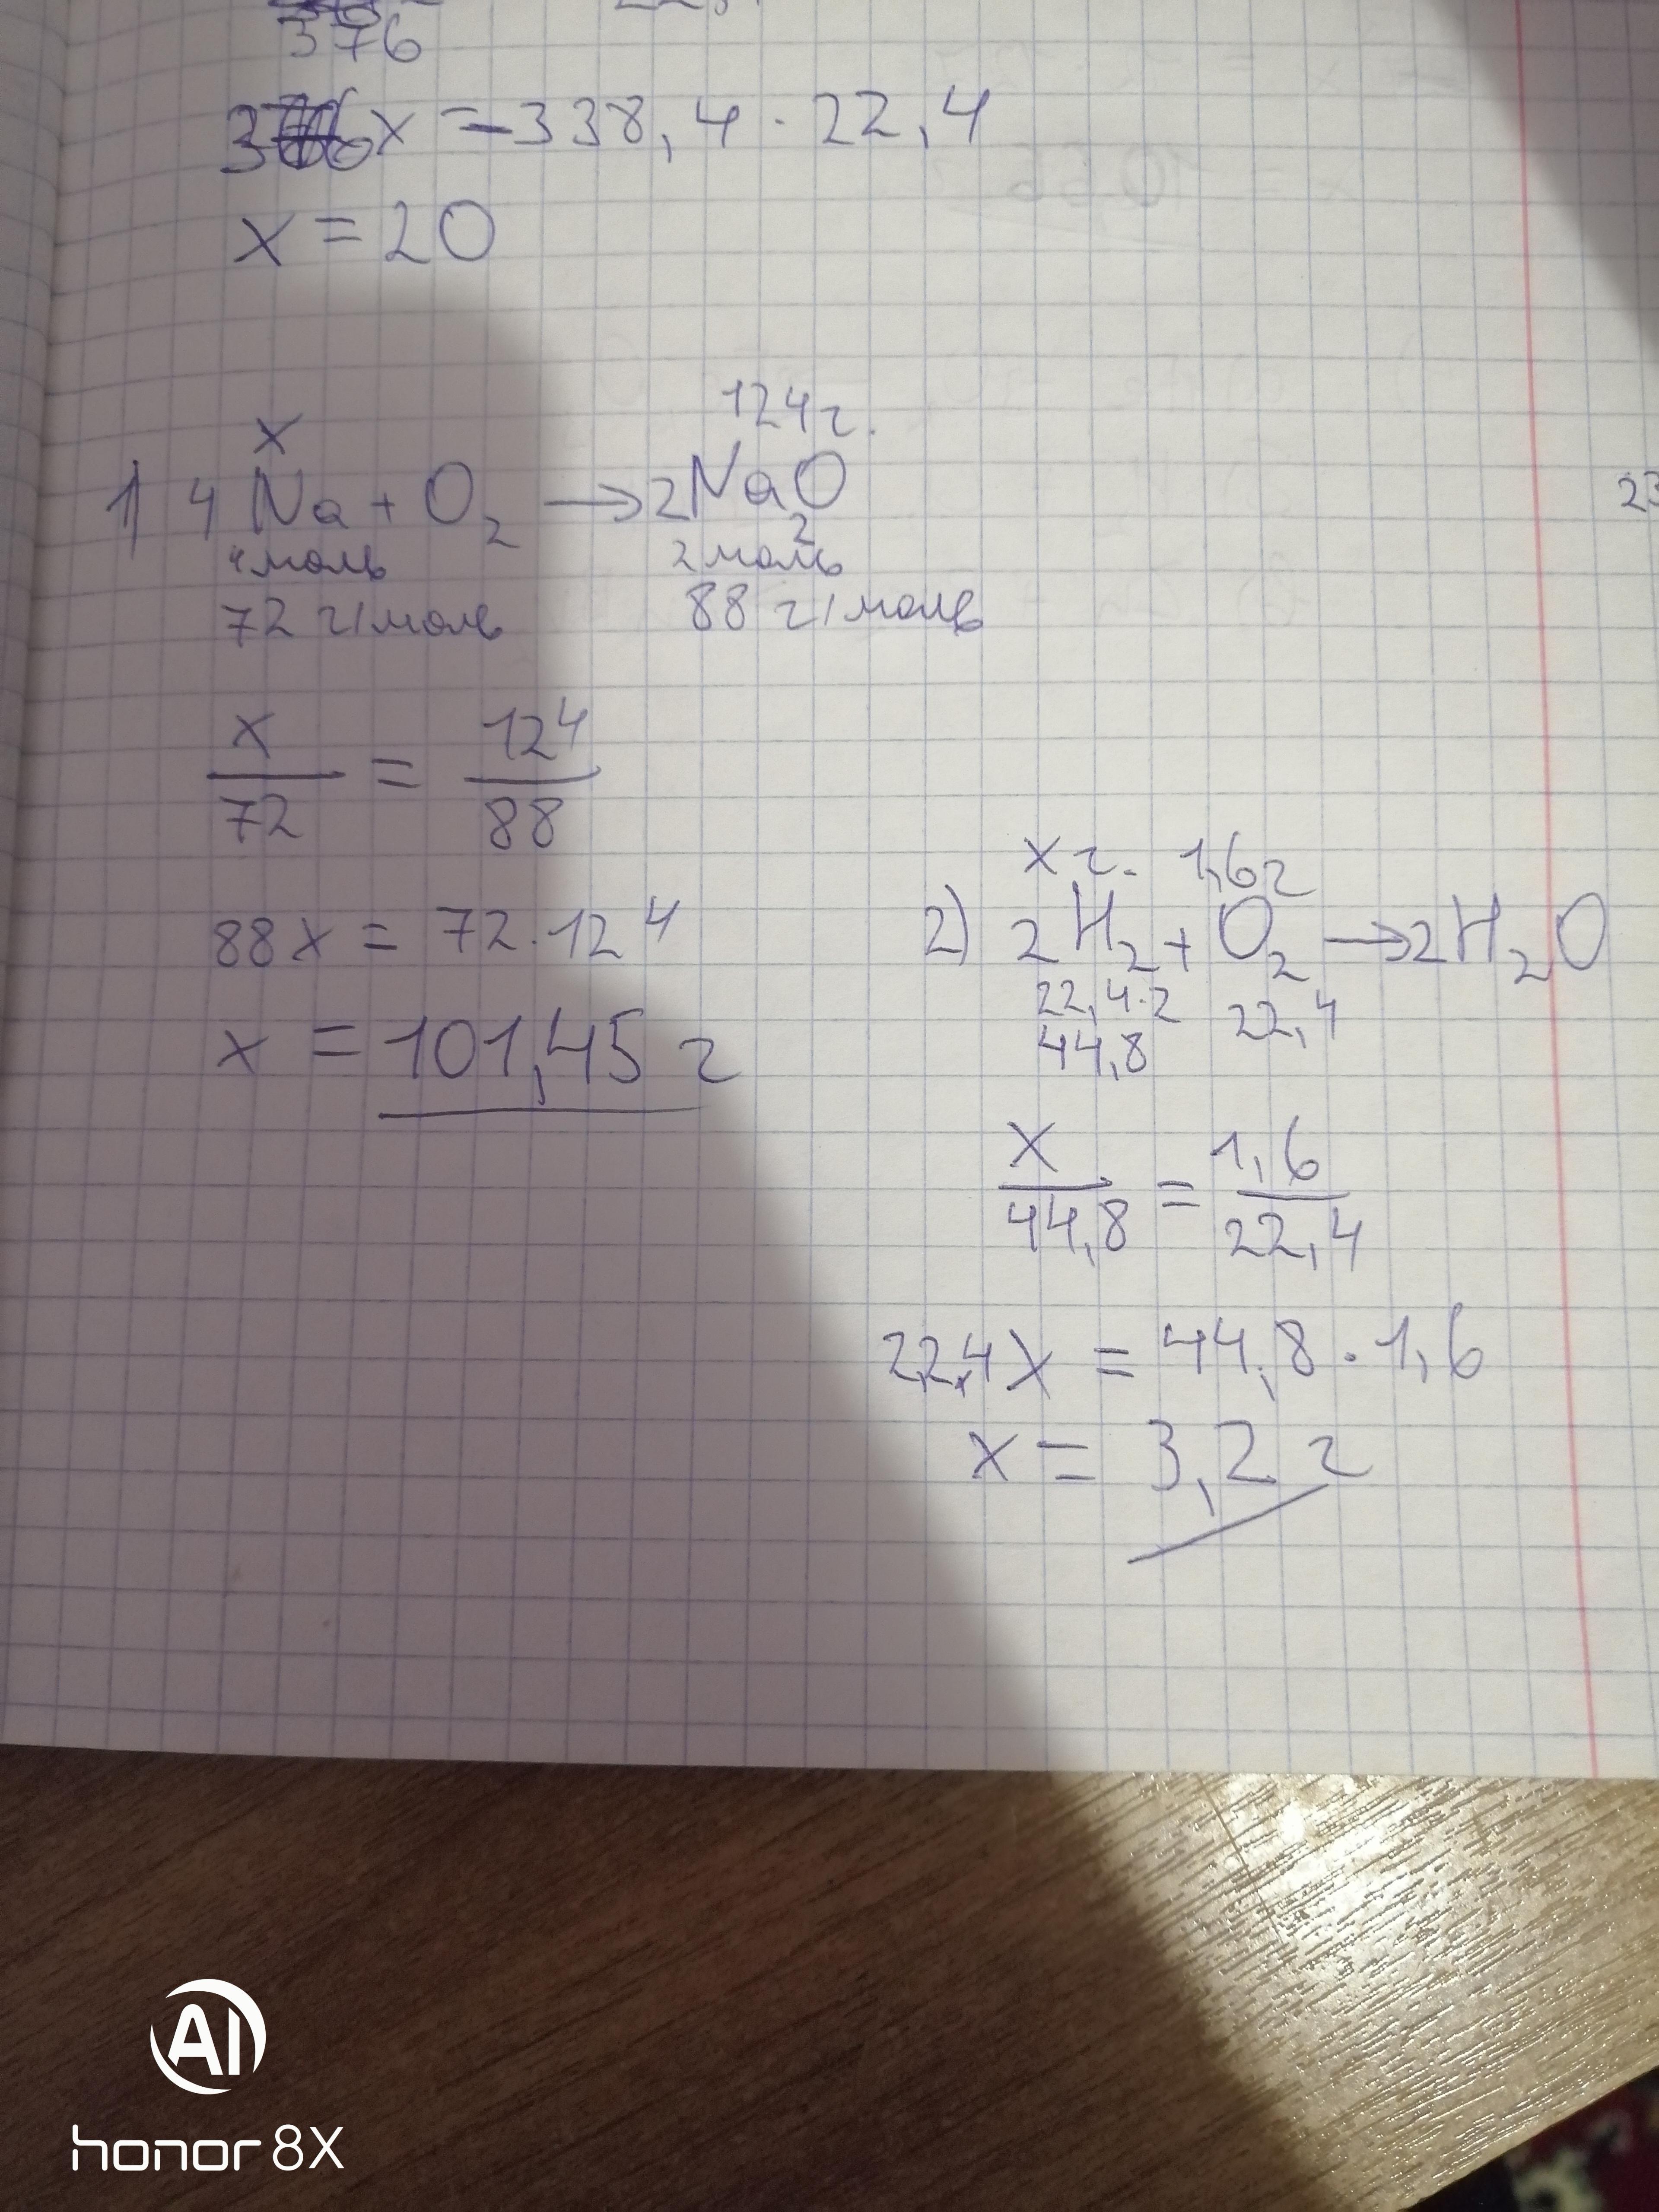 376
x = 338,4 · 22,4
x = 20
x 124 г.
1) 4 Na + O2 → 2 Na2O
4 моль 2 моль
72 г/моль 88 г/моль
x/72 = 124/88
88x = 72 · 124
x = 101,45 г
23
x г. 1,6 г
2) 2H2 + O2 → 2H2O
22,4·2 22,4
44,8
x/44,8 = 1,6/22,4
22,4x = 44,8 · 1,6
x = 3,2 г
AI
honor 8X